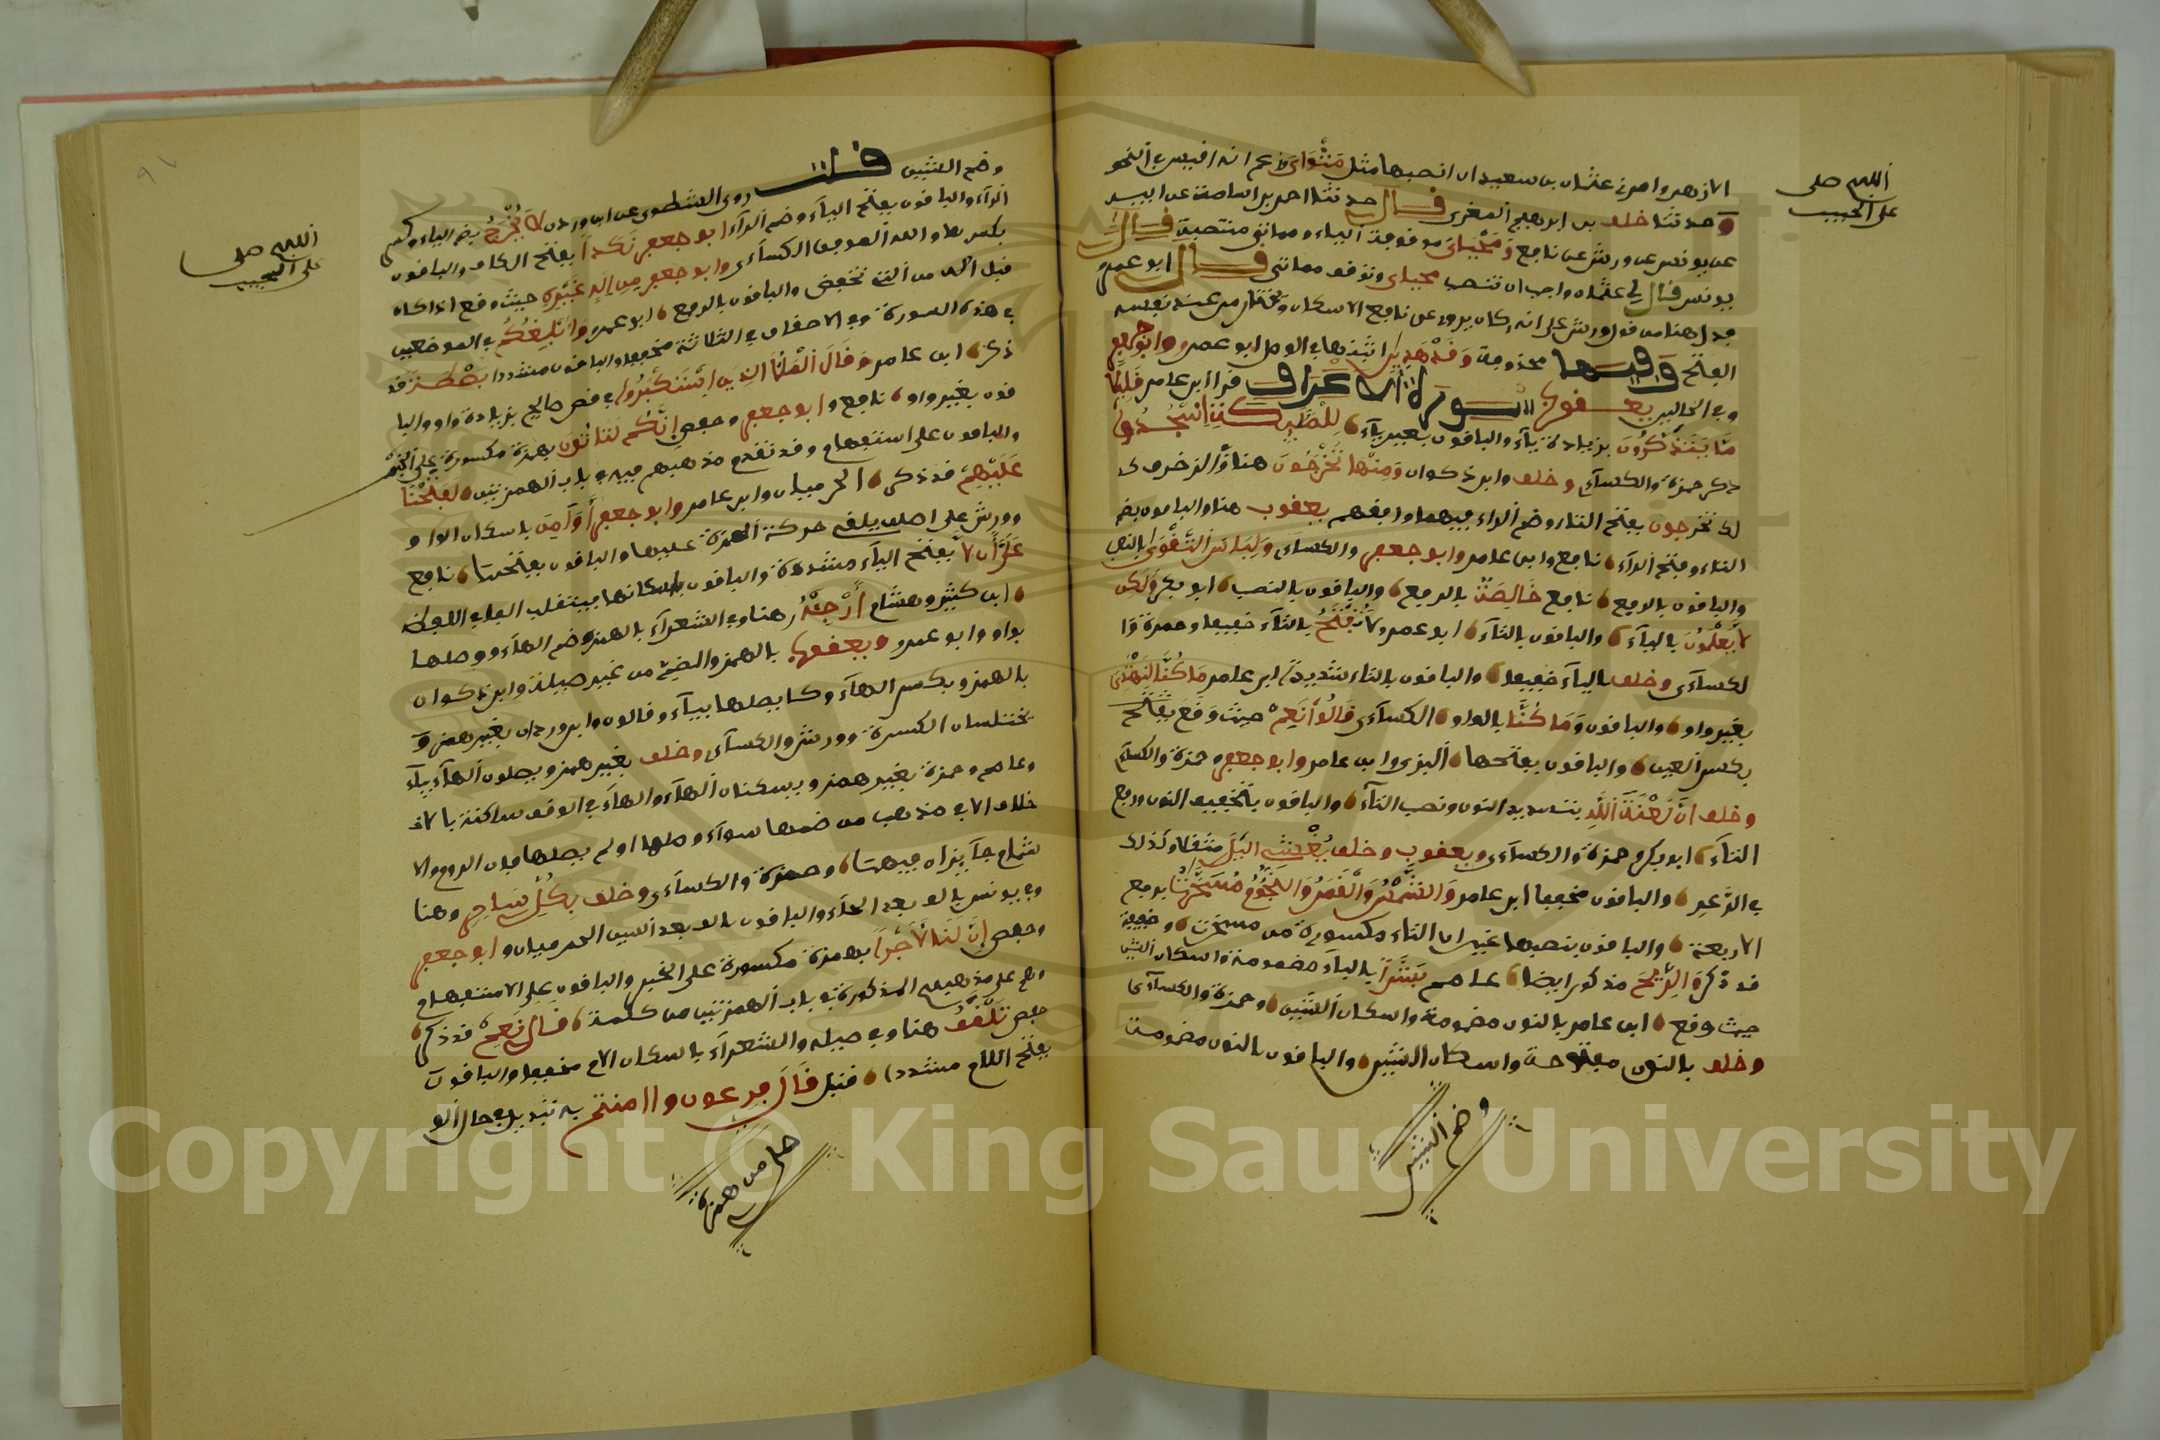 اللهم صلى
على الحبيب
الازهر وامرنى عثمان بن سعيد ان انصبها مثل مَثْوَايَ وزعم انه اقيس في النحو
وحدثنا خلف بن ابرهيم المغرى قال حدثنا احمد بن اسامة عن ابيه
عن يونس عن ورش عن نافع وَمَحْيَايَ موقوفة الياء ومماتى منتصبة قال
يونس قال لي عثمان واحب ان تنصب محياى وتوقف مماتى قال ابو عمرو
فدل هذا من قول ورش على انه كان يروى عن نافع الاسكان ويختار من عند نفسه
الفتح وفيها محذوفة وَقَدْ هَدَيٰنِ اثبتها في الوصل ابو عمرو وابو جعفر
وفي الحالين يعقوب سورة الاعراف قرا ابن عامر قَلِيلًا
مَّا يَتَذَكَّرُونَ بزيادة ياء والباقون بغير ياء لِلْمَلٰٓئِكَةِ اسْجُدُوا
ذكر حمزة والكسآءى وخلف وابن ذكوان وَمِنْهَا تَخْرُجُونَ هنا وَالزخرف كذ
لك تخرجون بفتح التاء وضم الراء فيهما وافقهم يعقوب هنا والباقون بضم
التاء وفتح الرآء نافع وابن عامر وابو جعفر والكساءى وَلِبَاسَ التَّقْوَى بالنصب
والباقون بالرفع نافع خَالِصَةٌ بالرفع والباقون بالنصب ابو بكر وَلٰكِن
لَّا يَعْلَمُونَ بالياء والباقون بالتآء ابو عمرو لَا تُفْتَحُ بالتآء خفيفا وحمزة وَا
لكسآءى وخلف بالياء خفيفا والباقون بالتاء شديدا ابن عامر مَا كُنَّا لِنَهْتَدِىَ
بغير واو والباقون وَمَا كُنَّا بالواو الكسآءى قَالُواْ نَعِمْ حيث وَقَع
بكسر العين والباقون بفتحها البزى وابن عامر وابو جعفر وحمزة والكسآءى
وخلف انَّ لَّعْنَةَ اَللَّهِ بتشديد النون ونصب التآء والباقون بتخفيف النون ورفع
التآء ابو بكر وحمزة والكسآءى ويعقوب وخلف يُغَشِّى اليْلَ مثقلا وكذلك
في الرَّعدِ والباقون مخففا ابن عامر وَالشَّمْسُ وَالْقَمَرُ وَالنُّجُومُ مُسَخَّرٰتٌ برفع
الاربعة والباقون بنصبها غير ان التاء مكسورة من مسخرات وخفية
قد ذكر والرِّيحَ مذكور ايضا عاصم بُشْرًا بالياء مضمومة واسكان الشين
حيث وقع ابن عامر بالنون مضمومة واسكان الشين وحمزة والكسآءى
وخلف بالنون مفتوحة واسكان الشين والباقون بالنون مضمومة
وضم الشين
٩٧
اللهم صلى
على الحبيب
وضم الشين قلت روى الشطوى عن ابن وردان لَا يُخْرِجُ بضم الياء وكسر
الرآء والباقون بفتح اليآء وضم الرآء ابو جعفر نَكَدًا بفتح الكاف والباقون
بكسرها والله الموفق الكسآءى وابو جعفر مِن اِلٰهٍ غَيْرِهِ حيث وقع اذا كان
قبل اله من التى تخفض والباقون بالرفع ابو عمرو وأُبْلِغُكُمْ في الموضعين
في هذه السورة وفي الاحقاف في الثلاثة مخففا والباقون مشددا بَصْۜطَةً قد
ذكر ابن عامر وَقَالَ الْمَلَأُ الذِينَ اسْتَكْبَرُوا في قصة صالح بزيادة واو والبا
قون بغير واو نافع وابو جعفر وحفص إِنَّكُمْ لَتَأْتُونَ بهمزة مكسورة على الخبر
والباقون على استفهام وقد تقدم مذهبهم فيه في باب الهمزتين لَفَتَحْنَا
عَلَيْهِمُ قد ذكر الحرميان وابن عامر وابو جعفر أَوْ أَمِنَ باسكان الواو و
وورش على اصله يلقى حركة الهمزة عليها والباقون بفتحها نافع
عَلَىَّ أَن لَّا بفتح اليآء مشددة والباقون باسكانها فتنقلب الفا في اللفظ
ابن كثير وهشام أَرْجِئْهُ هنا وفي الشعرآء بالهمز وضم الهآء ووصلها
بواو وابو عمرو ويعقوب بالهمز والضم من غير صلة وابن ذكوان
بالهمز وبكسر الهآء ولا يصلها بيآء وقالون وابن وردان بغير همز و
يختلسان الكسرة وورش والكسآءى وخلف بغير همز ويصلون الهآء بيآء
وعاصم وحمزة بغير همز ويسكنان الهآء والهآء في الوقف ساكنة بلا
خلاف الا في مذهب من ضمها سوآء وصلها او لم يصلها فان الروم والا
شمام جآيزان فيهما وحمزة والكسآءى وخلف بِكُلِّ سَحّٰرٍ هنا
وفي يونس بالف بعد الحآء والباقون بالف بعد السين الحرميان وابو جعفر
وحفص إِنَّ لَنَا لَأَجْراً بهمزة مكسورة على الخبر والباقون على الاستفهام
وهم على مذهبهم المذكورة في باب الهمزتين من كلمة قَالَ نَعِمْ قد ذكر
حفص تَلْقَفُ هنا وفي طه والشعرآء باسكان اللام مخففا والباقون
بفتح اللام مشددا قنبل قَالَ فِرعون وءامنتم به تبديل في حال الو
صل من همزة
Copyright © King Saud University